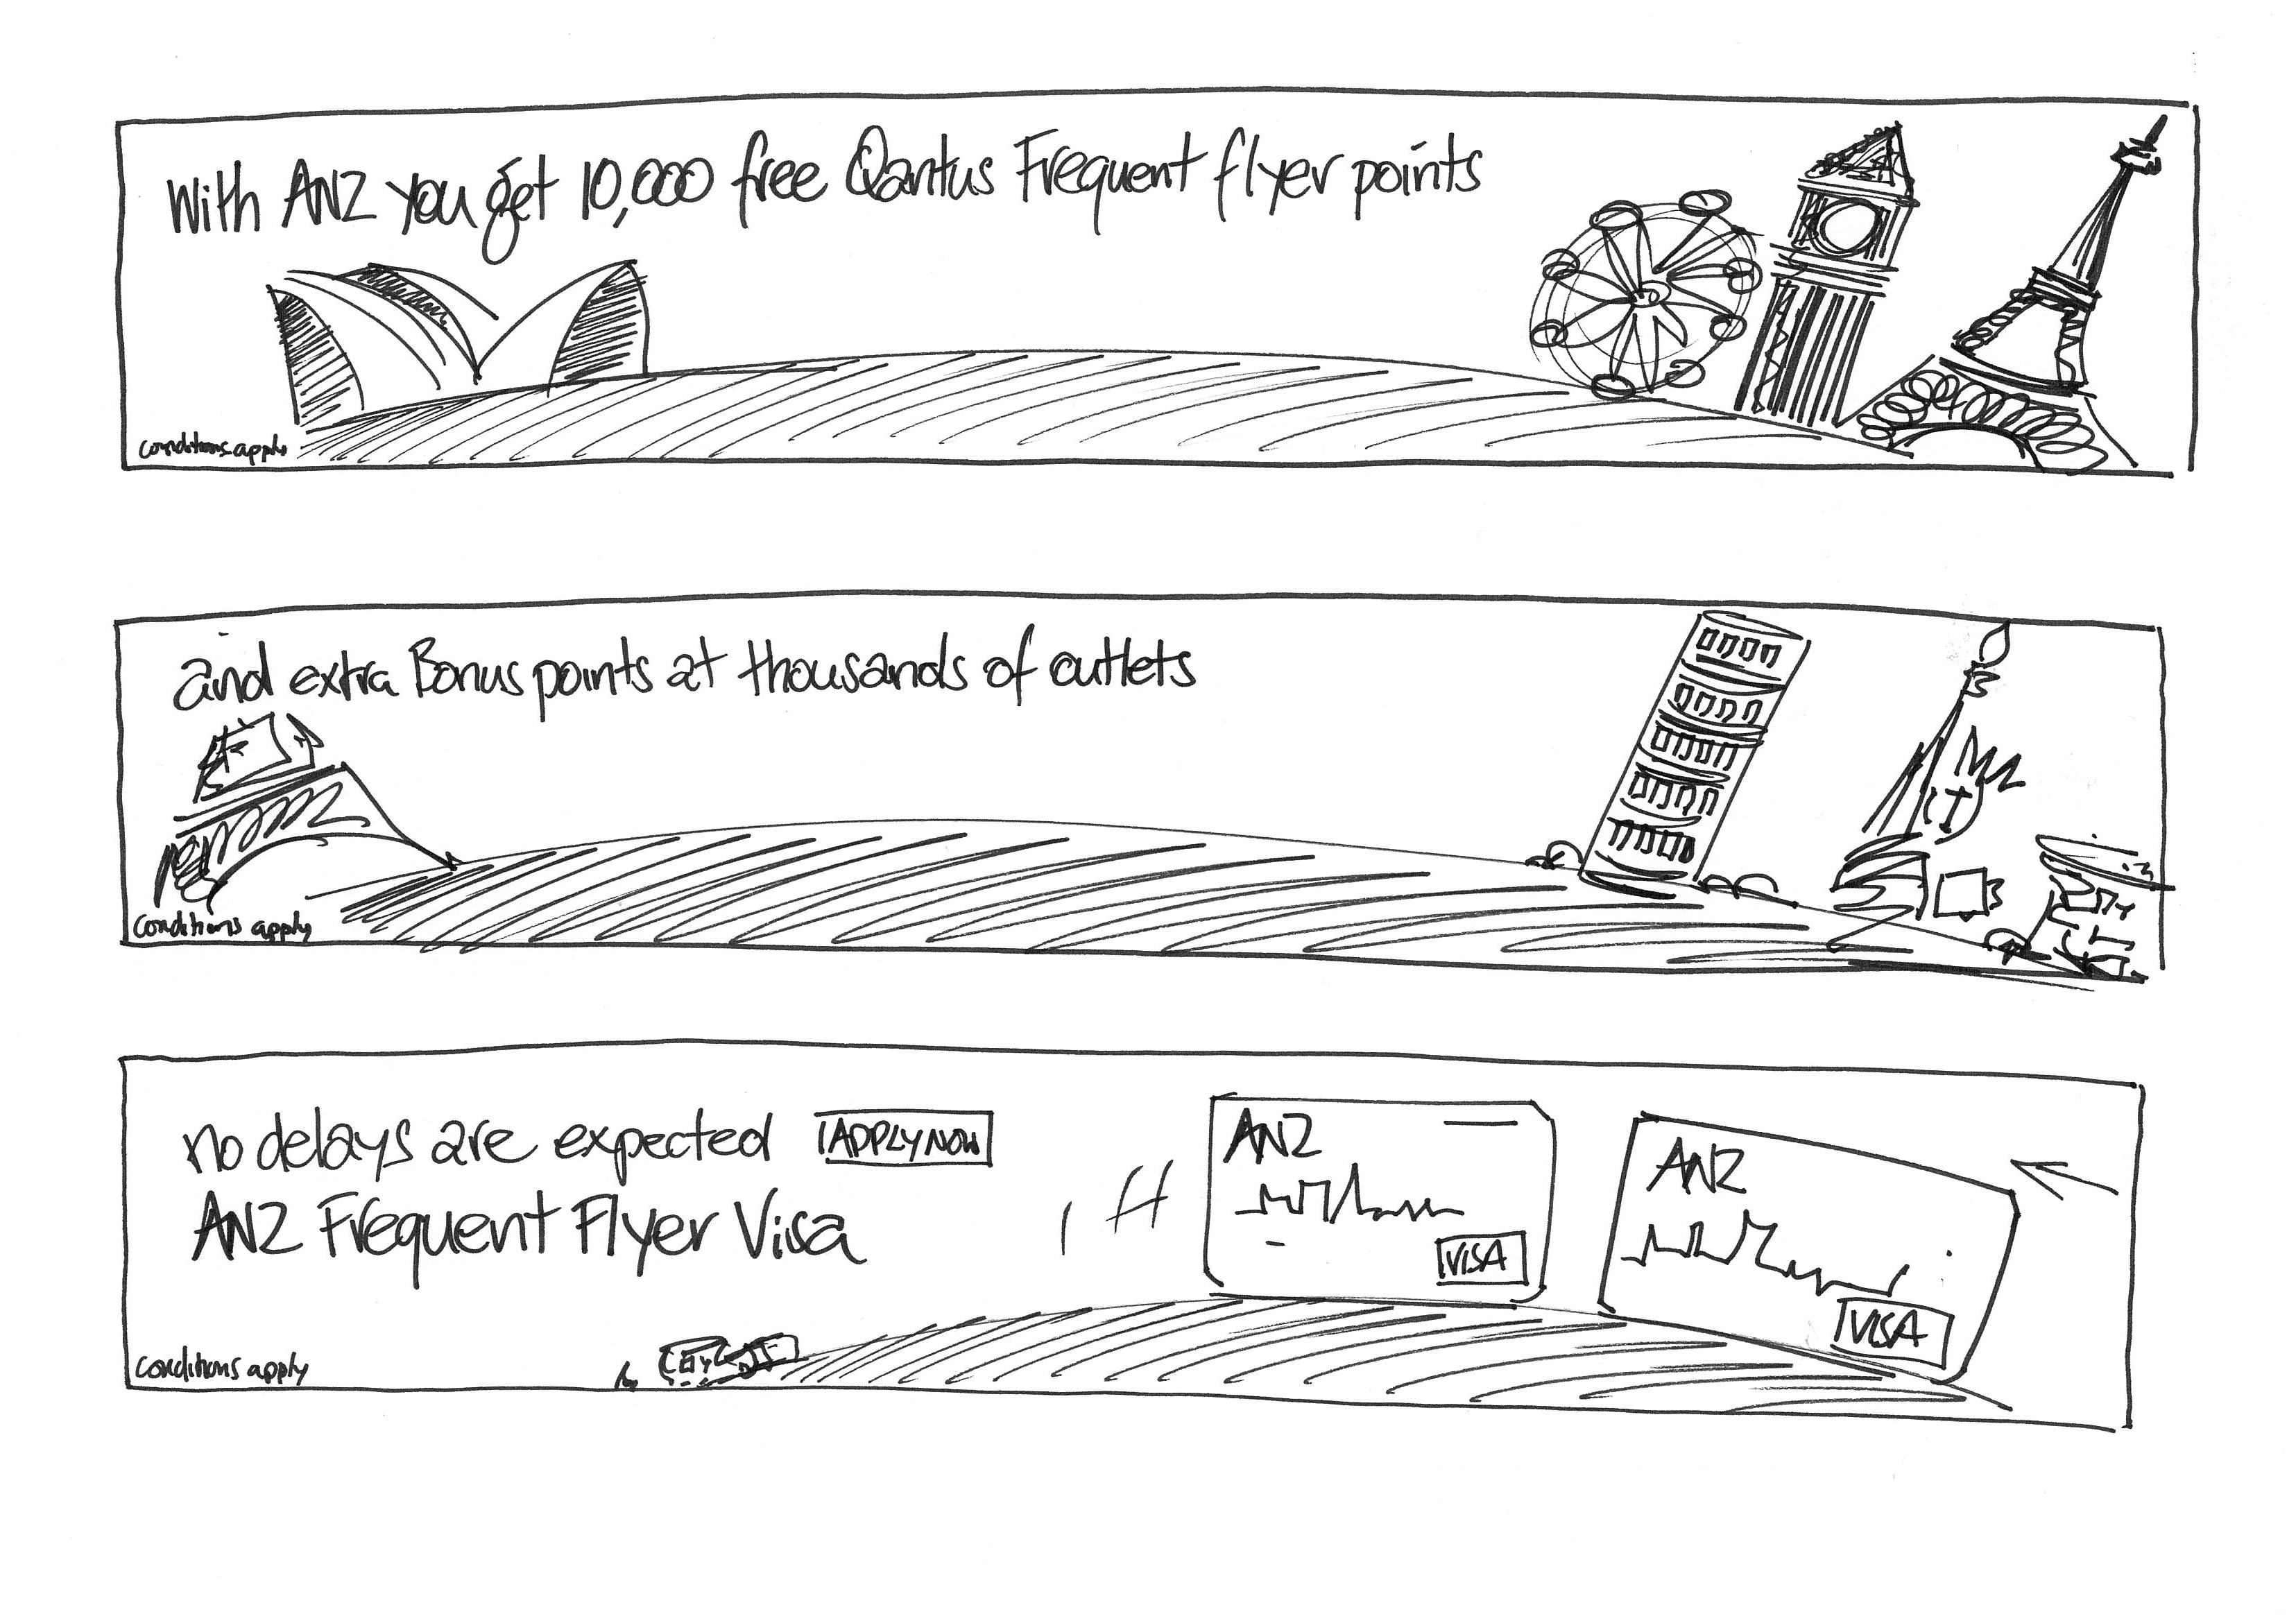 With ANZ you get 10,000 free Qantus Frequent flyer points
conditions apply
and extra Bonus points at thousands of outlets
conditions apply
no delays are expected
APPLY NOW
ANZ Frequent Flyer Visa
ANZ
VISA
ANZ
VISA
conditions apply